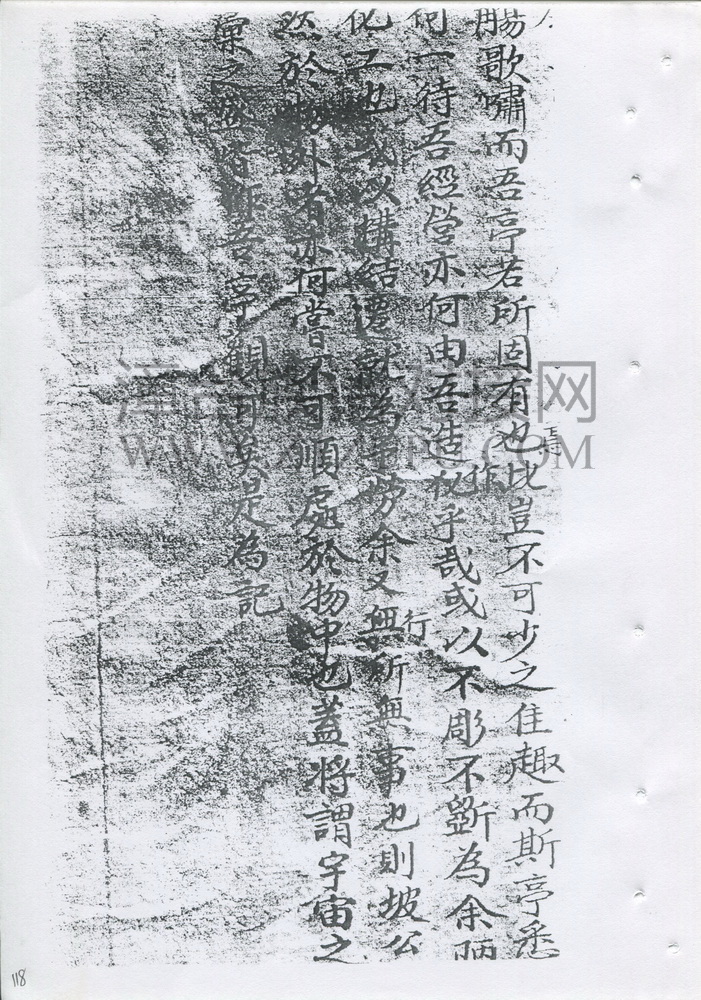 觴歌嘯而吾亭若所固有也此豈不可少之佳趣而斯亭悉
何一待吾經營亦何由吾造作化乎哉或以不彫不斲為余陋
化工也或以構結遷就為余勞余又無所行無事也則坡公
然於物外者亦何嘗不可順處於物中也蓋將謂宇宙之
彙之盛皆作吾亭觀可矣是為記
WWW.
118